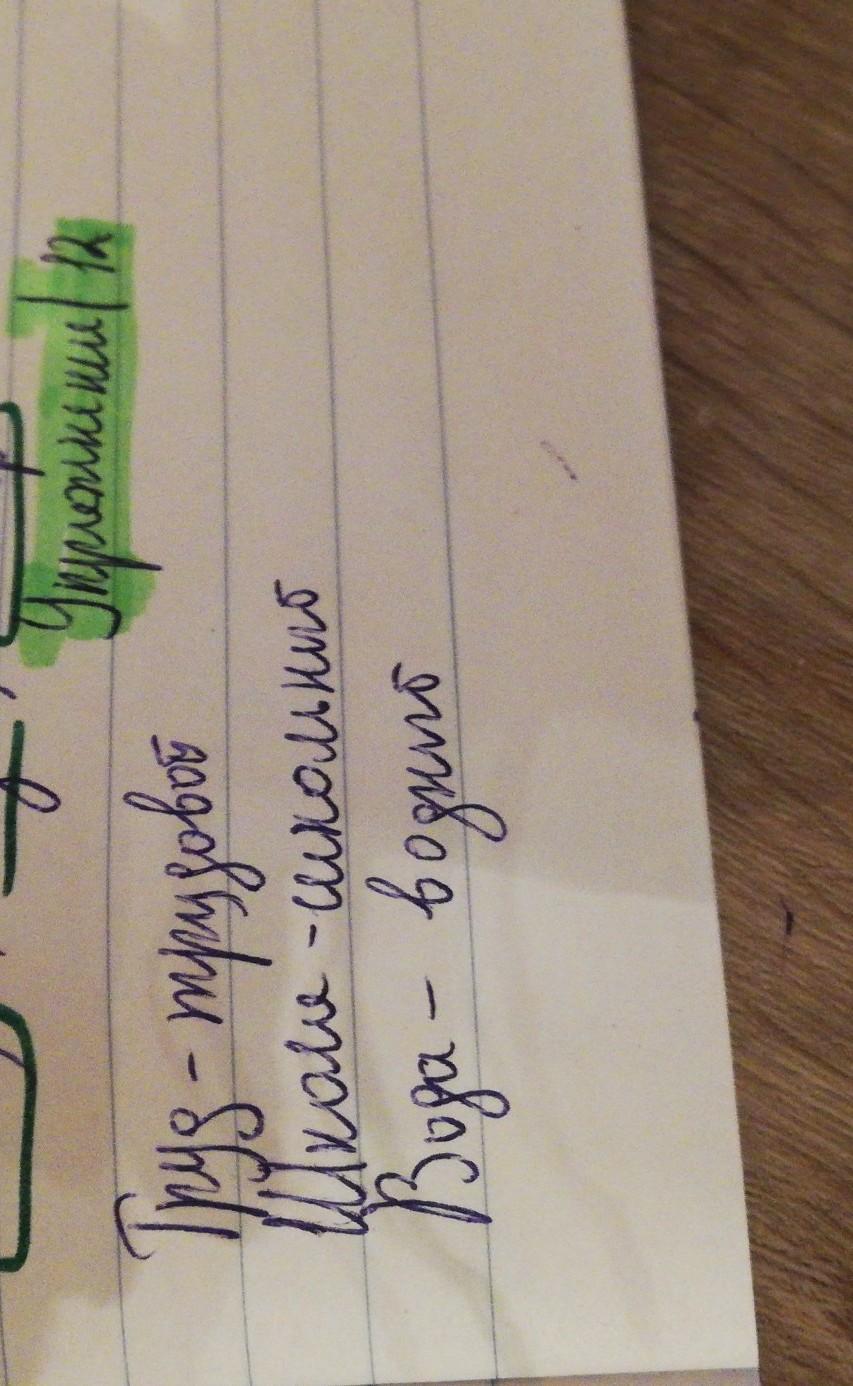 Упражнения 12
Труд - трудовой
Школа - школьный
Вода - водный